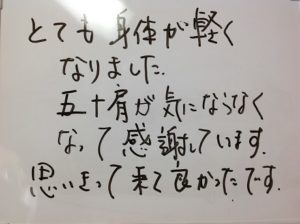 とても身体が軽く
なりました.
五十肩が気にならなく
なって感謝しています.
思いきって来て良かったです.